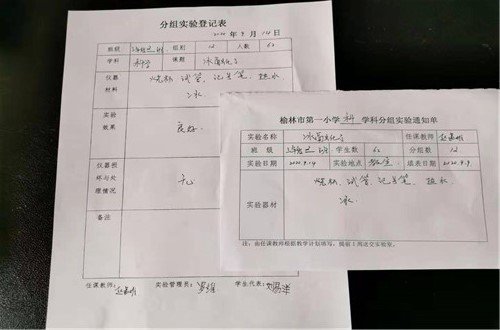 分组实验登记表
2020年9月14日
班级 组别 12 人数 62
学科 科学 课题 冰融化了
仪器材料 烧杯、试管、记号笔、热水、冰
实验效果 良好
仪器损坏与处理情况 无
备注
任课教师: 实验管理员: 学生代表:
榆林市第一小学 科 学科分组实验通知单
实验名称 冰融化了 任课教师
班级 学生数 62 分组数 12
实验日期 2020.9.14 实验地点 教室 填表日期 2020.9.9
实验器材 烧杯、试管、记号笔、热水
冰
注：由任课教师根据教学计划填写，提前1周送交实验室。